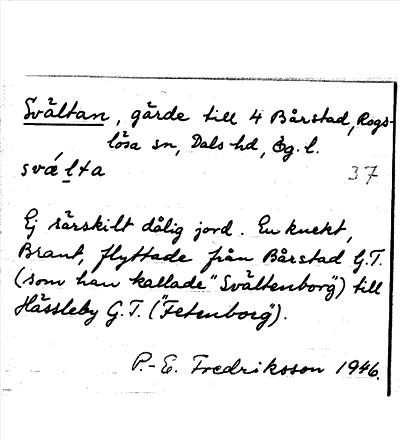 Svältan, gärde till 4 Bårstad, Rogs-
lösa sn, Dals hd, Ög. l.
svǽlta
37
Ej särskilt dålig jord. En knekt,
Brant, flyttade från Bårstad G.T.
(som han kallade "Svältenborg") till
Hässleby G.T. ("Fetenborg").
P.-E. Fredriksson 1946.